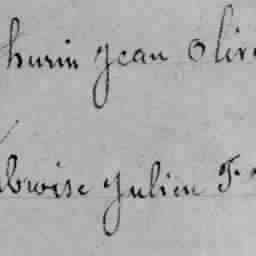 hurin Jean Oliv
broise Julien F.